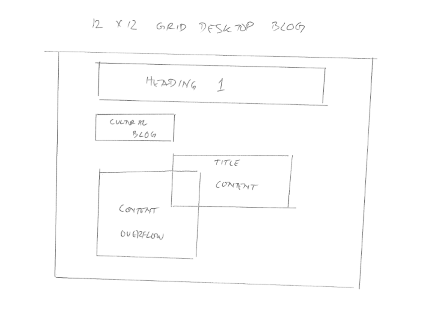 12 X 12 GRID DESKTOP BLOG
HEADING 1
CULTURAL
BLOG
TITLE
CONTENT
CONTENT
OVERFLOW